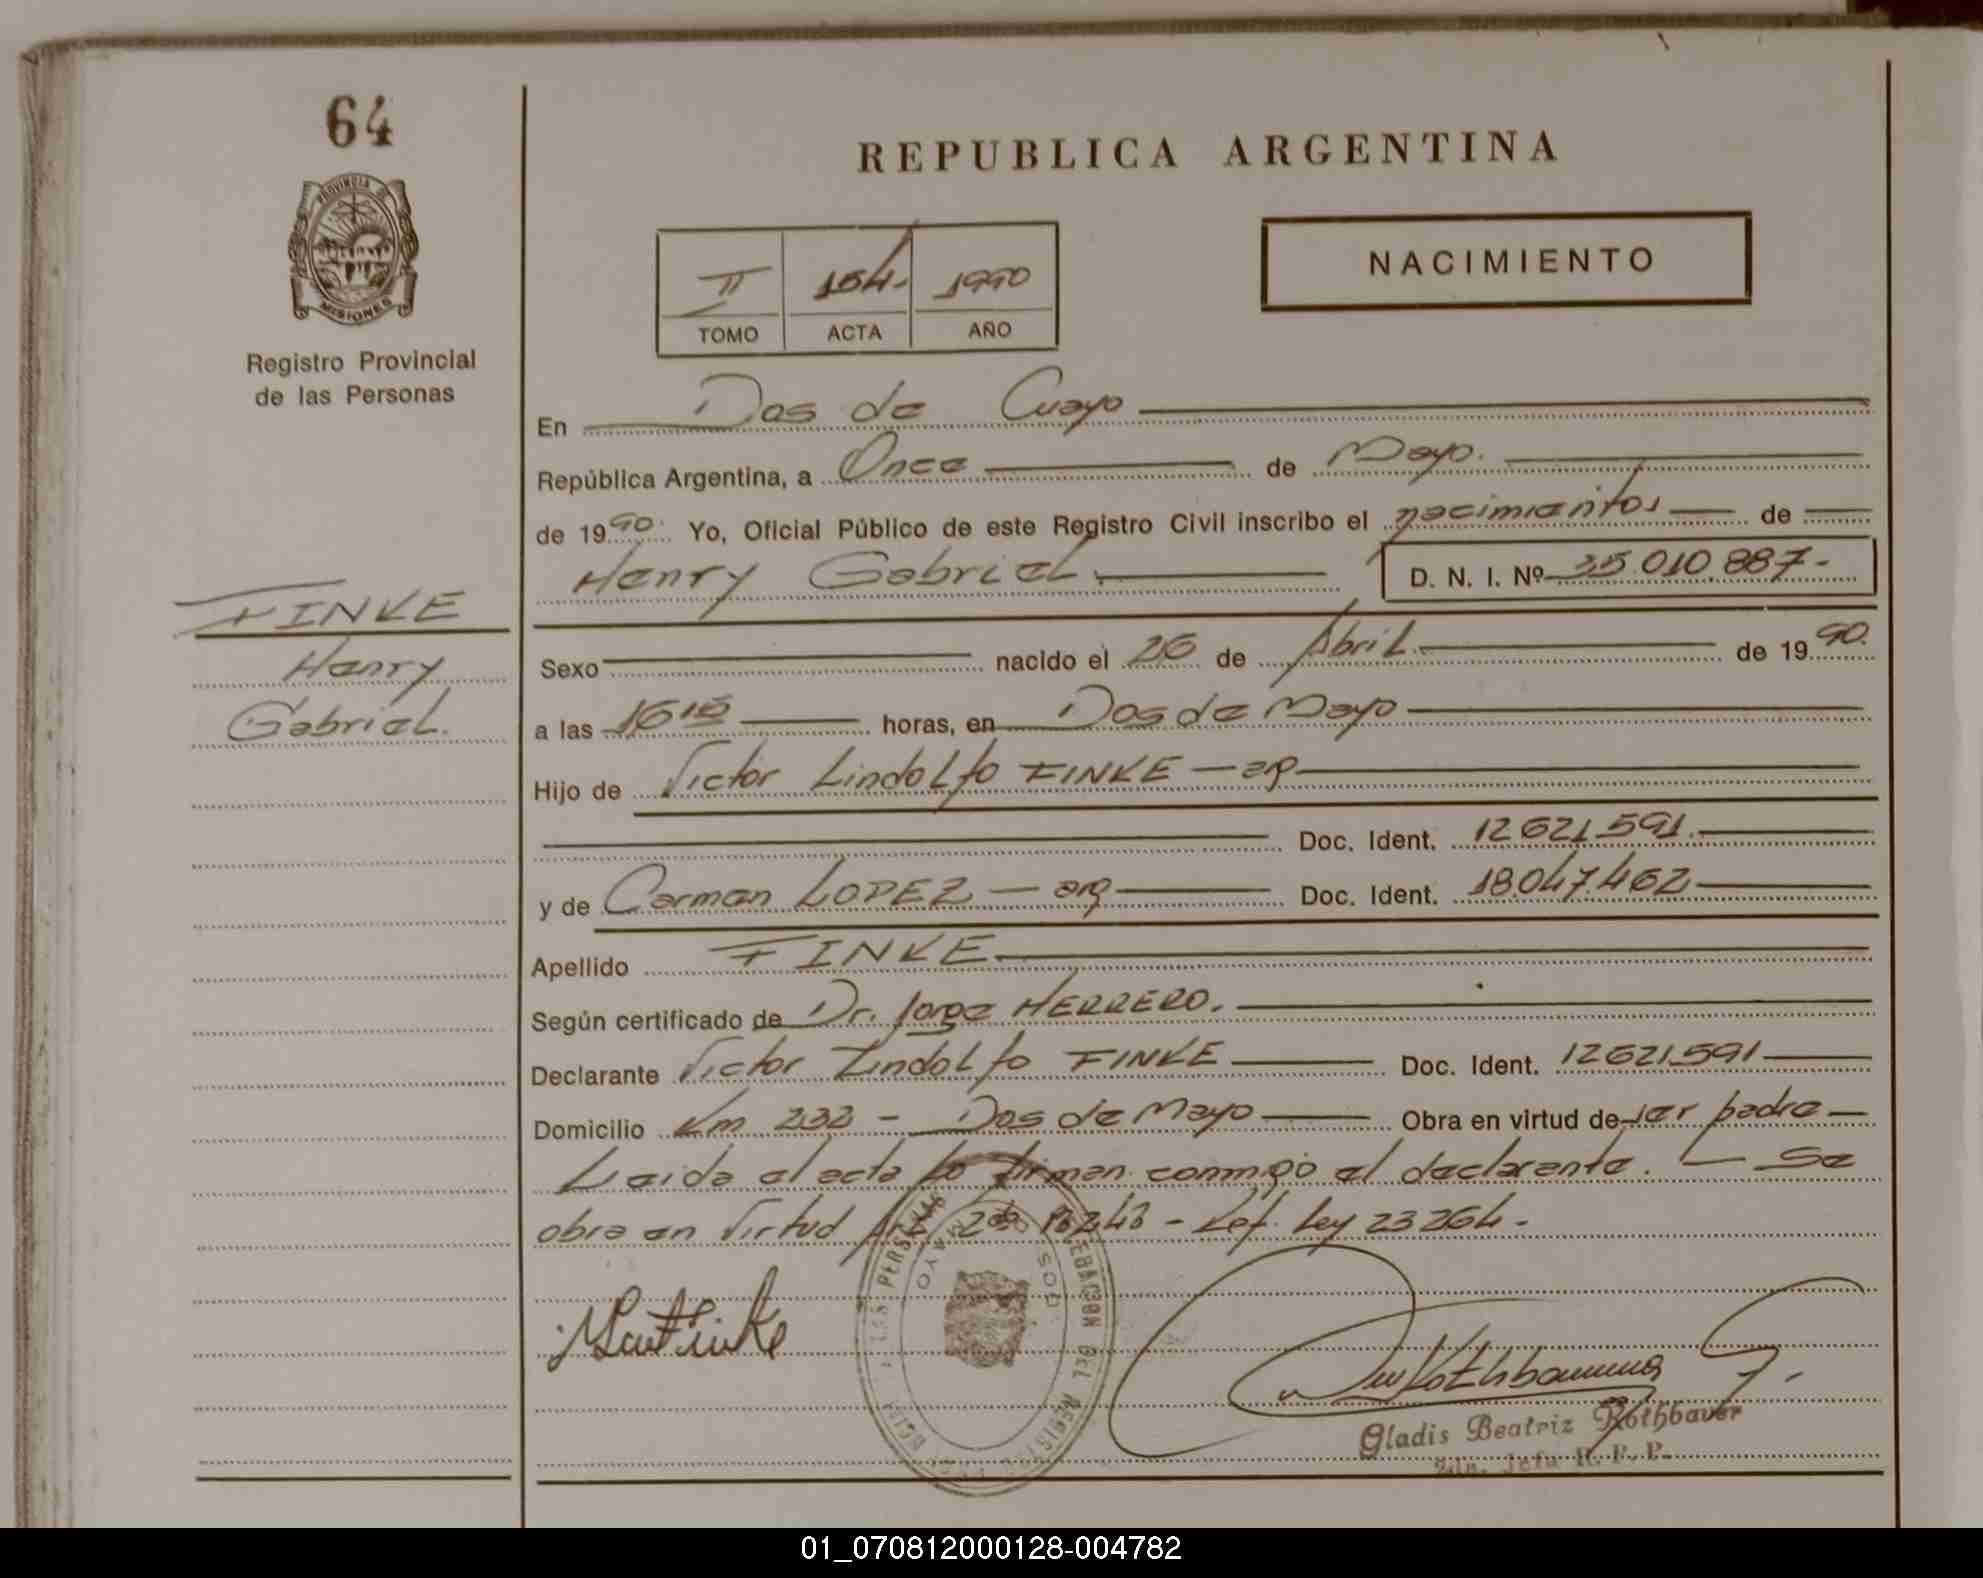 64
PROVINCIA DE
MISIONES
Registro Provincial
de las Personas
FINKE
Henry
Gabriel.
REPUBLICA ARGENTINA
II 164.- 1990
TOMO ACTA AÑO
NACIMIENTO
En Dos de Mayo
República Argentina, a Once de Mayo.
de 1990. Yo, Oficial Público de este Registro Civil inscribo el nacimientos de
Henry Gabriel. D. N. I. Nº 35.010.887.-
Sexo nacido el 26 de Abril. de 1990.
a las 16 15 horas, en Dos de Mayo
Hijo de Victor Lindolfo FINKE - arg
Doc. Ident. 12621.591.
y de Carmen LOPEZ - arg Doc. Ident. 18.047.462
Apellido FINKE
Según certificado de Dr. Jorge HERRERO.
Declarante Victor Lindolfo FINKE Doc. Ident. 12621.591
Domicilio Km 232 - Dos de Mayo Obra en virtud de ser padre
Leida el acta lo firman conmigo el declarante. - Se
obra en virtud Art. 243 - Ley 23264.-
DOS DE MAYO
Gladis Beatriz Rothbauer
Jefa R. P. P.
01_070812000128-004782